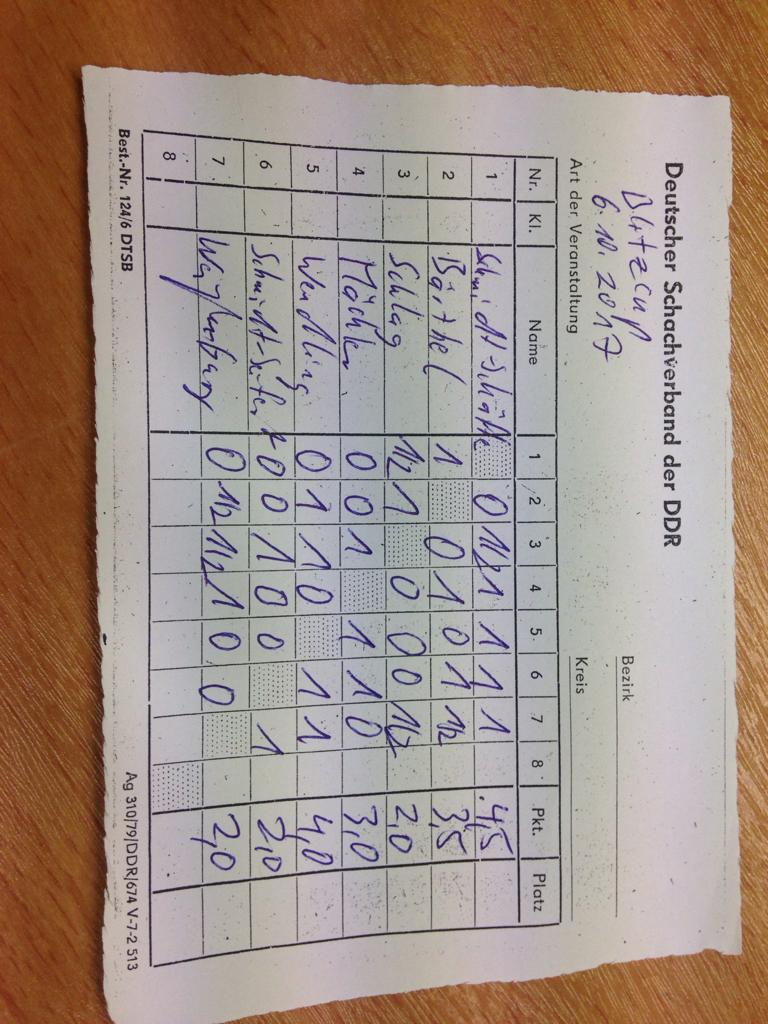 Deutscher Schachverband der DDR
Blitzcup
6.10.2017
Bezirk
Art der Veranstaltung Kreis
Nr. Kl. Name 1 2 3 4 5 6 7 8 Pkt. Platz
1 Schmidt-Schäffer 0 1/2 1 1 1 1 4,5
2 Barthel 1 0 1 0 1 1/2 3,5
3 Schlag 1/2 1 0 0 0 1/2 2,0
4 0 0 1 1 1 0 3,0
5 Wendling 0 1 1 0 1 1 4,0
6 0 0 1 0 0 1 2,0
7 0 1/2 1/2 1 0 0 2,0
8
Best.-Nr. 124/6 DTSB Ag 310/79/DDR/674 V-7-2 513